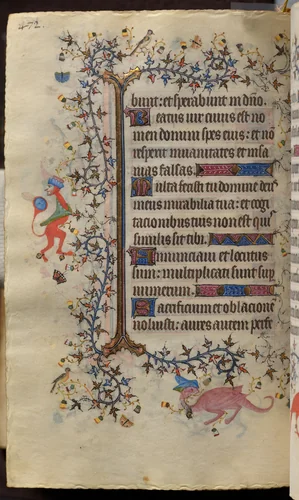 472.
bunt: et sperabunt in dno
Beatus vir cuius est no
men domini spes eius: et nō
respexit in vanitates et insa
nias falsas.
Multa fecisti tu domine de
meus mirabilia tua: et cogi
tacionibus tuis non est qui
similis sit tibi.
Annunciavi et locutus
sum: multiplicati sunt sup
numerum.
Sacrificium et oblacionē
noluisti: aures autem perfe